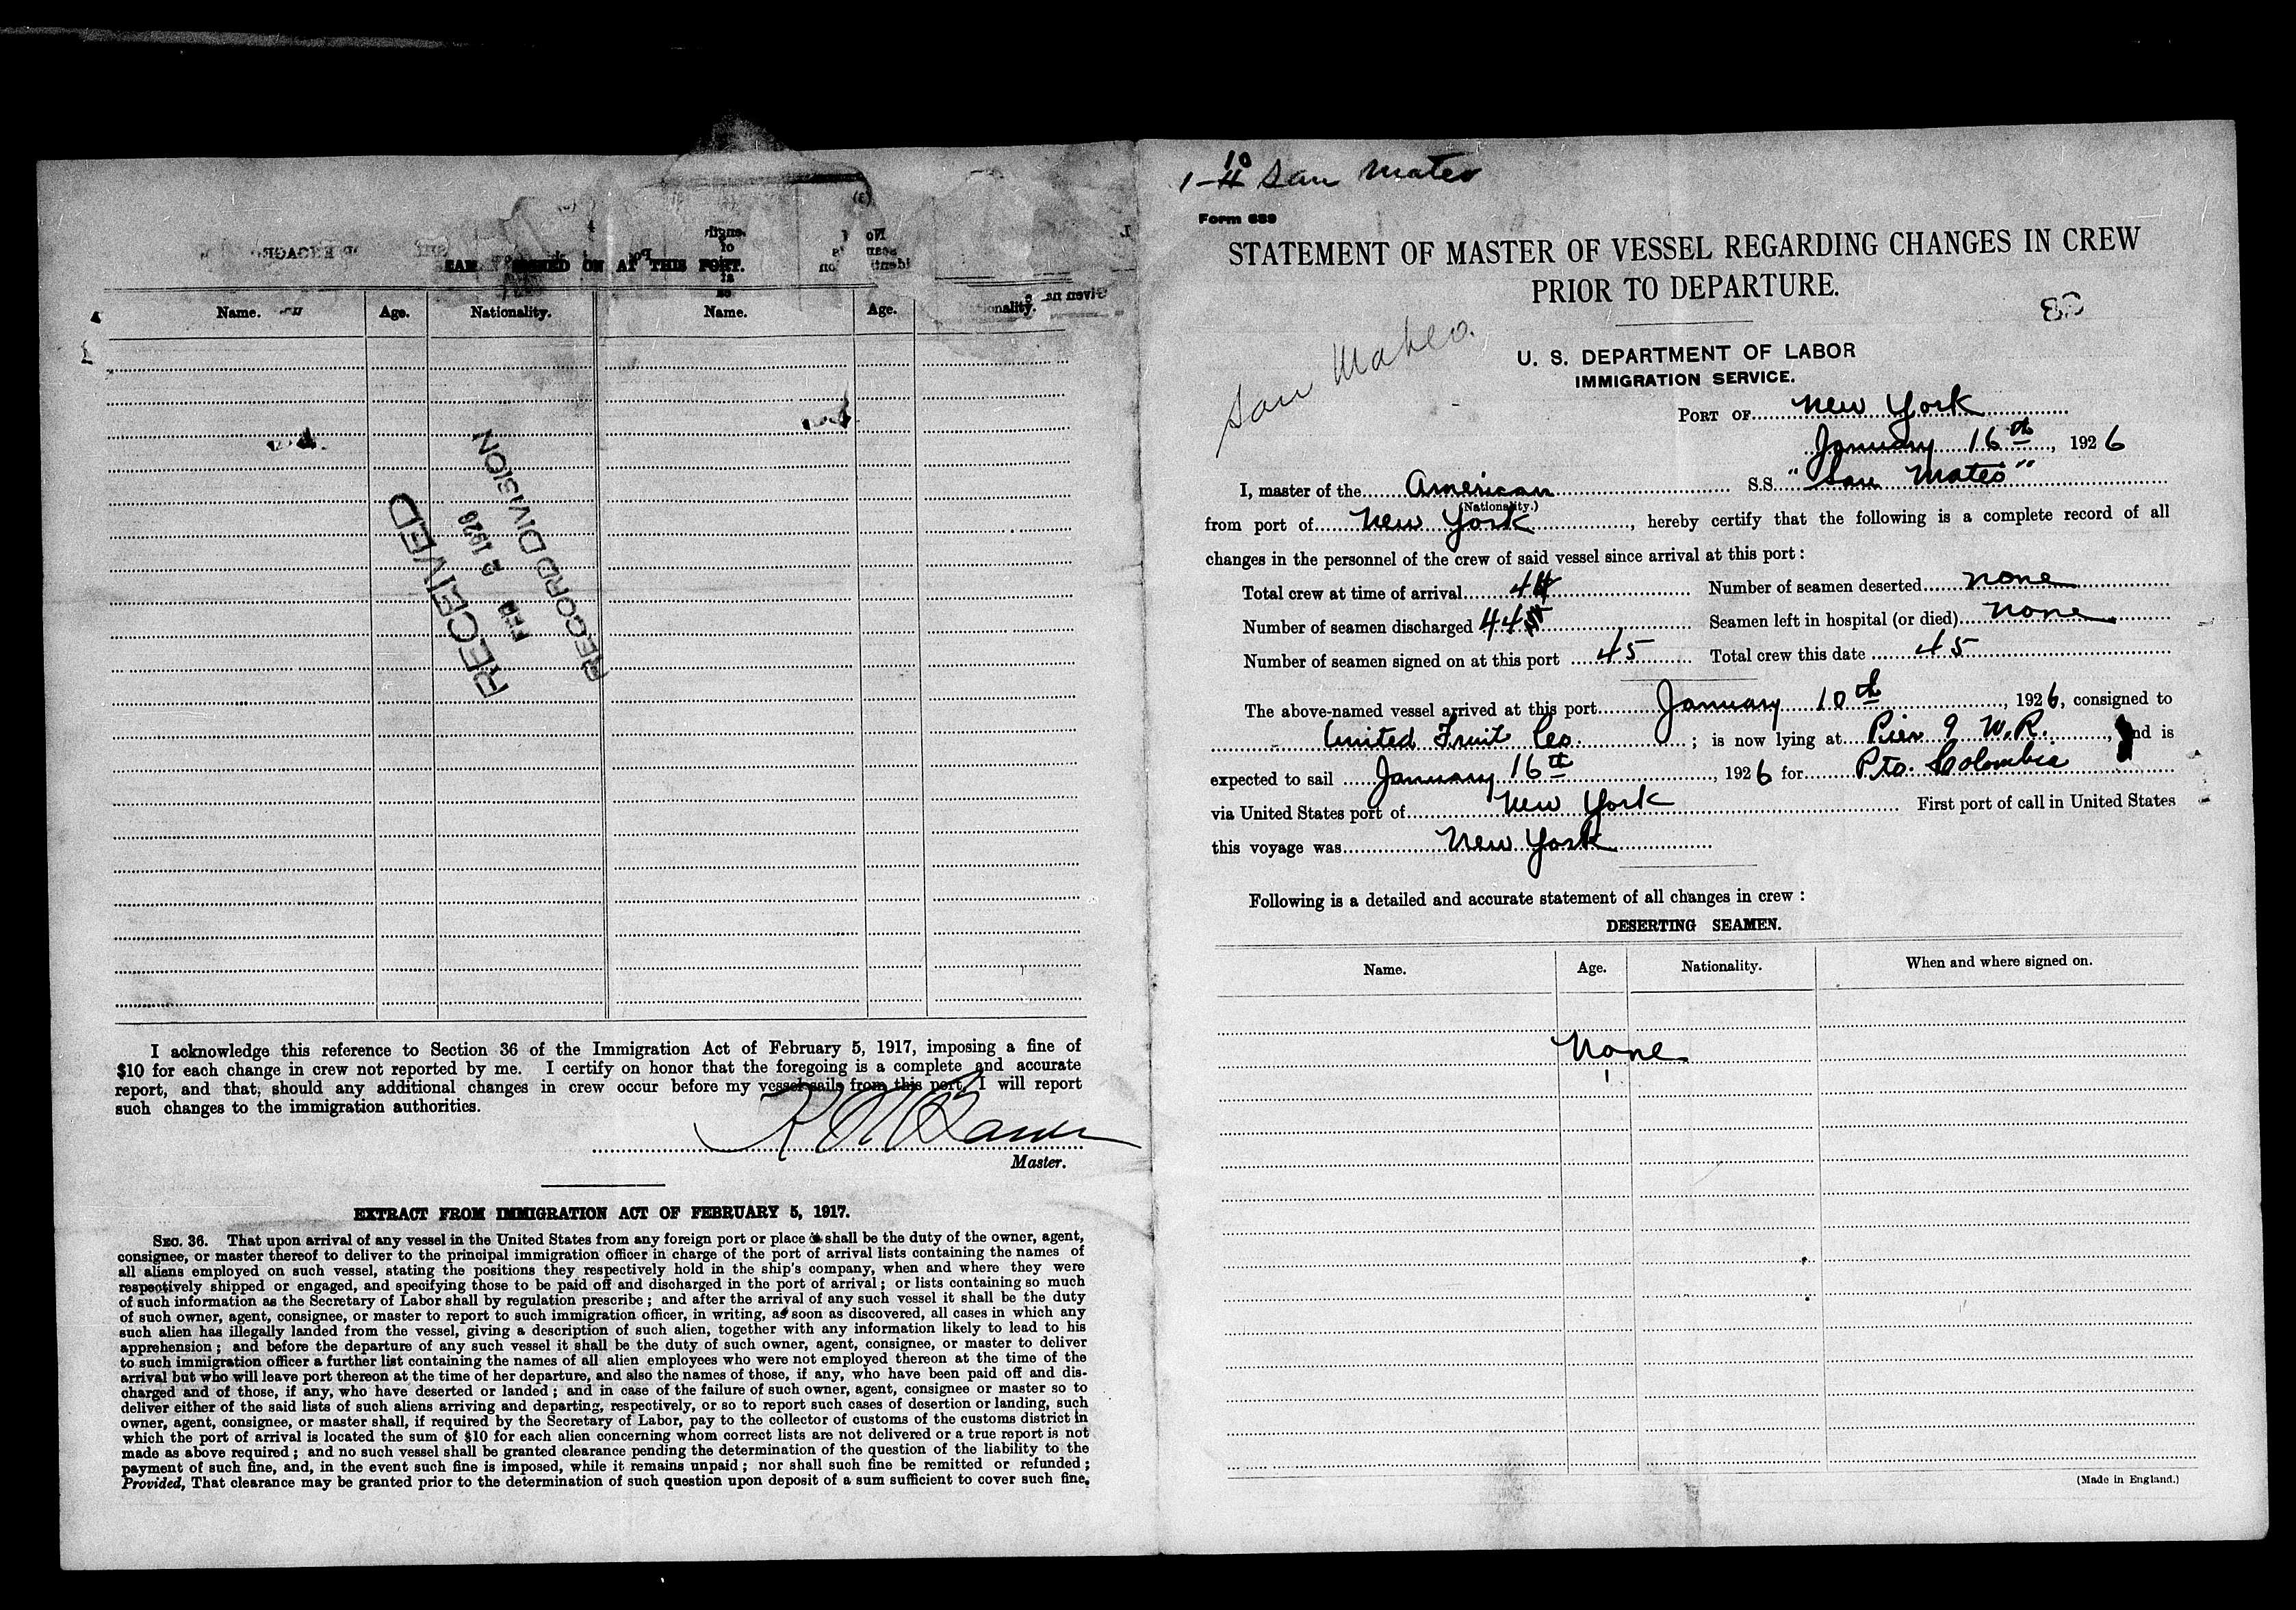 SIGNED ON AT THIS PORT.
Name. Age. Nationality. Name. Age. Nationality.
RECEIVED
FEB 1926
RECORD DIVISION
I acknowledge this reference to Section 36 of the Immigration Act of February 5, 1917, imposing a fine of
$10 for each change in crew not reported by me. I certify on honor that the foregoing is a complete and accurate
report, and that, should any additional changes in crew occur before my vessel sails from this port, I will report
such changes to the immigration authorities.
Master.
EXTRACT FROM IMMIGRATION ACT OF FEBRUARY 5, 1917.
SEC. 36. That upon arrival of any vessel in the United States from any foreign port or place it shall be the duty of the owner, agent,
consignee, or master thereof to deliver to the principal immigration officer in charge of the port of arrival lists containing the names of
all aliens employed on such vessel, stating the positions they respectively hold in the ship's company, when and where they were
respectively shipped or engaged, and specifying those to be paid off and discharged in the port of arrival; or lists containing so much
of such information as the Secretary of Labor shall by regulation prescribe; and after the arrival of any such vessel it shall be the duty
of such owner, agent, consignee, or master to report to such immigration officer, in writing, as soon as discovered, all cases in which any
such alien has illegally landed from the vessel, giving a description of such alien, together with any information likely to lead to his
apprehension; and before the departure of any such vessel it shall be the duty of such owner, agent, consignee, or master to deliver
to such immigration officer a further list containing the names of all alien employees who were not employed thereon at the time of the
arrival but who will leave port thereon at the time of her departure, and also the names of those, if any, who have been paid off and dis-
charged and of those, if any, who have deserted or landed; and in case of the failure of such owner, agent, consignee or master so to
deliver either of the said lists of such aliens arriving and departing, respectively, or so to report such cases of desertion or landing, such
owner, agent, consignee, or master shall, if required by the Secretary of Labor, pay to the collector of customs of the customs district in
which the port of arrival is located the sum of $10 for each alien concerning whom correct lists are not delivered or a true report is not
made as above required; and no such vessel shall be granted clearance pending the determination of the question of the liability to the
payment of such fine, and, in the event such fine is imposed, while it remains unpaid; nor shall such fine be remitted or refunded;
Provided, That clearance may be granted prior to the determination of such question upon deposit of a sum sufficient to cover such fine.
1-10 San Mateo
Form 689
STATEMENT OF MASTER OF VESSEL REGARDING CHANGES IN CREW
PRIOR TO DEPARTURE.
San Mateo.
U. S. DEPARTMENT OF LABOR
IMMIGRATION SERVICE.
PORT OF New York
January 16th, 1926
I, master of the American S.S. "San Mateo"
(Nationality.)
from port of New York, hereby certify that the following is a complete record of all
changes in the personnel of the crew of said vessel since arrival at this port:
Total crew at time of arrival 44 Number of seamen deserted none
Number of seamen discharged 44 Seamen left in hospital (or died) none
Number of seamen signed on at this port 45 Total crew this date 45
The above-named vessel arrived at this port January 10th, 1926, consigned to
United Fruit Co.; is now lying at Pier 9 W.R., and is
expected to sail January 16th, 1926 for Pto. Colombia
via United States port of New York First port of call in United States
this voyage was New York
Following is a detailed and accurate statement of all changes in crew:
DESERTING SEAMEN.
Name. Age. Nationality. When and where signed on.
None
(Made in England.)